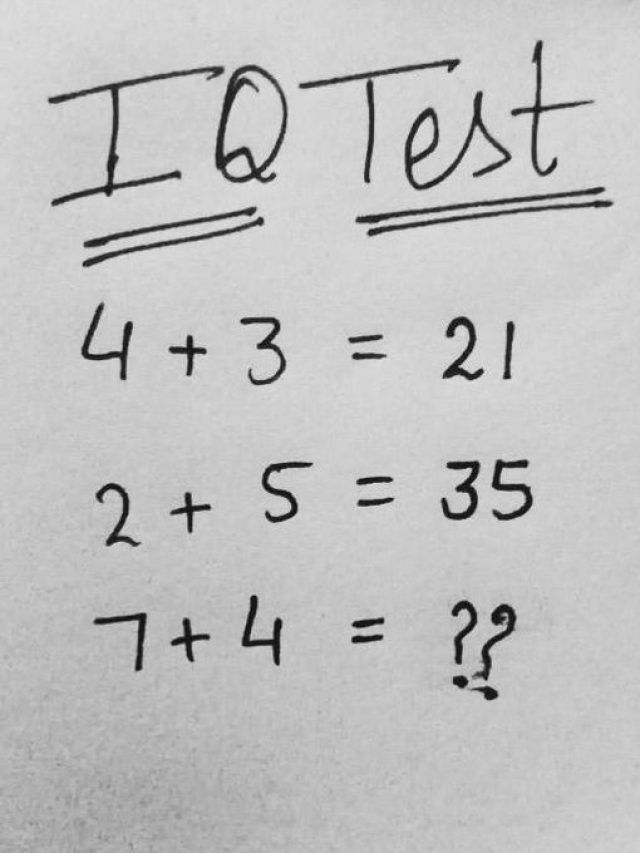 IQ Test
4 + 3 = 21
2 + 5 = 35
7 + 4 = ??